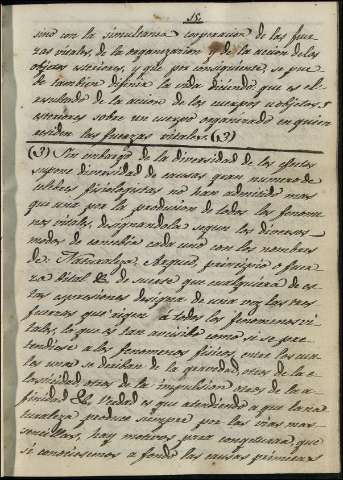 15.
sino con la simultanea cooperacion de las fuer-
zas vitales, de la organizacion y de la accion de los
objetos esteriores, y que por consiguiente, se pue-
de tambien difinir la vida diciendo que es el re-
sultado de la accion de los cuerpos u objetos
esteriores sobre un cuerpo organizado en quien
residen las fuerzas vitales. (3)
(3) Sin embargo de la diversidad de los efectos
supone diversidad de causas gran numero de
celebres fisiologistas no han admitido mas
que una por la produccion de todos los fenome-
nos vitales, designandola segun los diversos
modos de concebir cada uno con los nombres
de Naturaleza, Arqueo, principio o fuer-
za vital &. de suerte que cualquiera de es-
tas espresiones designa de una vez las tres
fuerzas que rigen a todos los fenomenos vi-
tales, lo que es tan como si se pre-
tendiese a los fenomenos fisicos, entre los cua-
les unos se derivan de la gravedad, otros de la e-
lasticidad, otros de la impulsion, otros de la a-
finidad &. Verdad es que atendiendo a que la na-
turaleza produce siempre por las vias mas
sencillas, hay motivos para conjeturar, que
si conociesemos a fondo las causas primeras